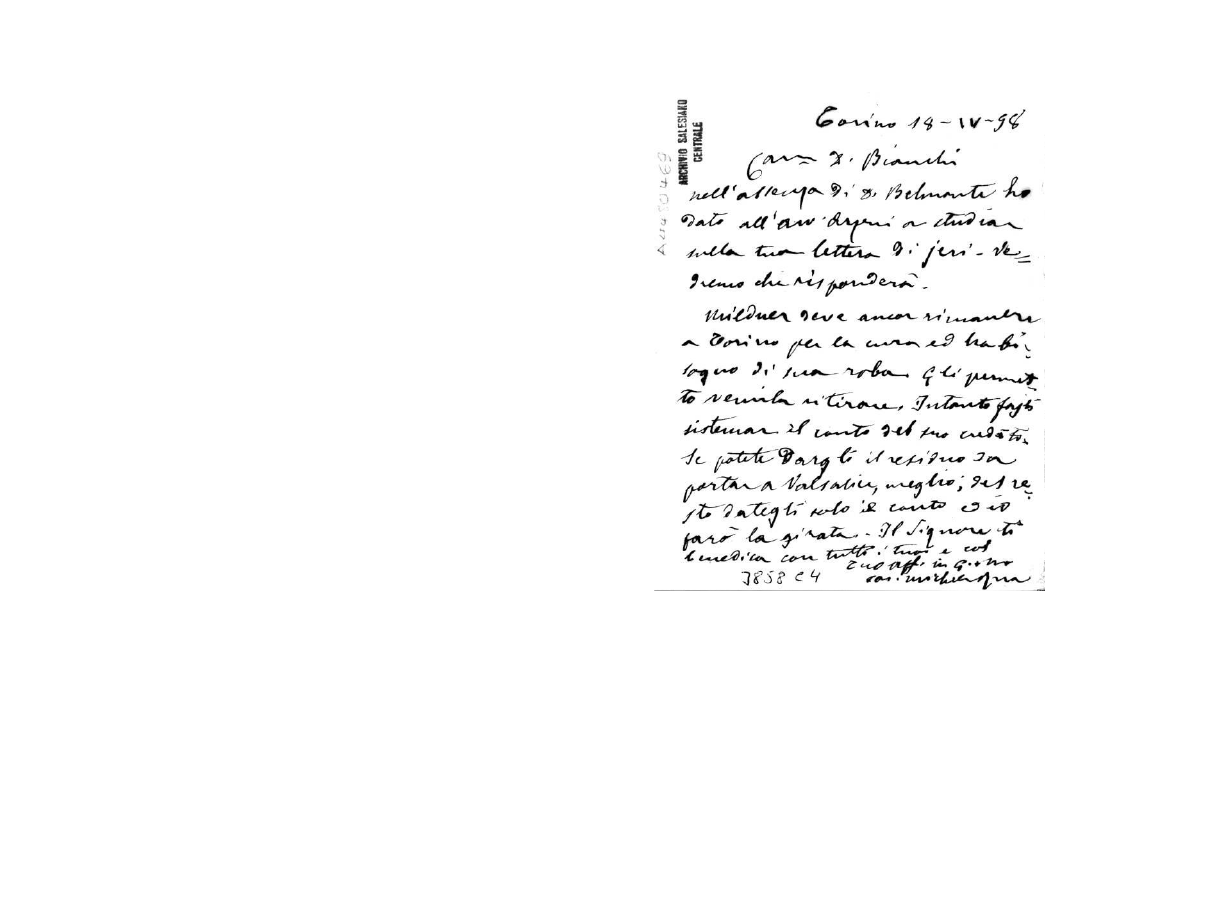 ARCHIVIO SALESIANO
CENTRALE
Torino 18-IV-98
Car.mo D. Bianchi
nell'assenza di D. Belmonte ho
dato all'avv a studiar
sulla tua lettera di jeri - ve=
dremo che risponderà.
Mildner deve ancor rimanere
a Torino per la cura ed ha bi-
sogno di sua roba. Gli permet-
to venirla ritirare. Intanto fagli
sistemar il conto del suo credito.
Se potete dargli il residuo da
portar a Valsalice, meglio; del re-
sto dategli solo il conto ed io
farò la girata. Il Signore ti
benedica con tutti i tuoi e col
tuo aff. in G. e M.
Sac. Michele Rua
3858 C4